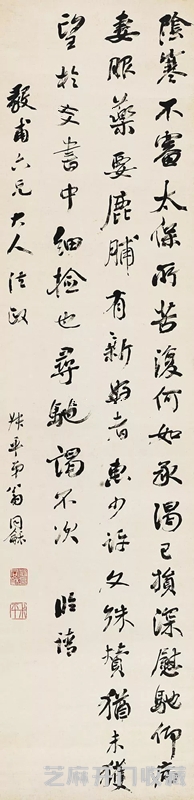 陰寒不審太保所苦復何如承渴已損深慰馳仰病
妻服藥要鹿脯有新好者惠少許文殊贊猶未獲
望於文書中細撿也尋馳謁不次 臨請
毅甫六兄大人法政
叔平弟翁同龢
芝麻开门收藏